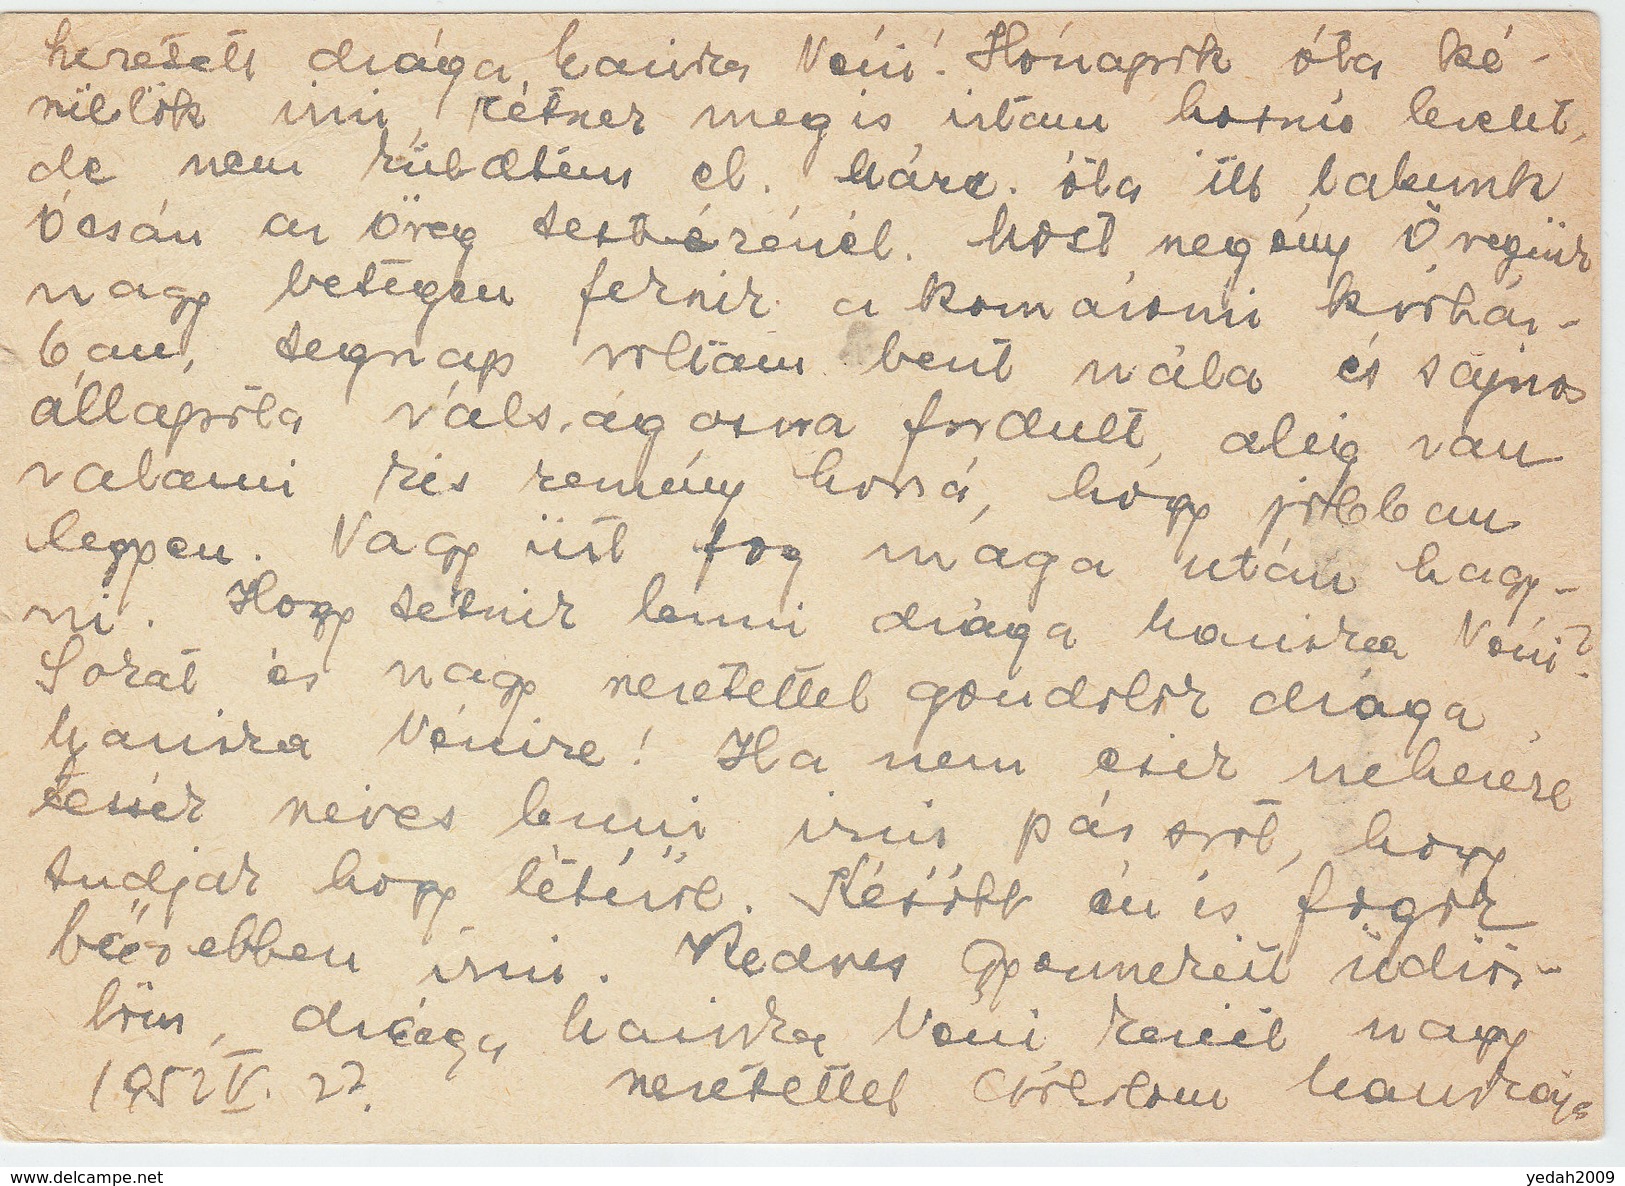 Szeretett drága Mariska Néni! Hónapok óta ké-
szülök irni, kétszer meg is irtam hosszú levelet,
de nem küldtem el. Márc. óta itt lakunk
Ócsán az Öreg testvérénél. Most szegény Öregünk
nagy betegen fekszik a komáromi kórház-
ban, tegnap voltam bent nála és sajnos
állapota válságosra fordult, alig van
valami kis remény hozzá, hogy jobban
legyen. Nagy űrt fog maga után hagy-
ni. Hogy tetszik lenni drága Mariska Néni?
Sokat és nagy szeretettel gondolok drága
Mariska Nénire! Ha nem esik nehezére
tessék szives lenni irni pár sort, hogy
tudjak hogy létéről. Később én is fogok
bővebben irni. Kedves Gyermekeit üdvöz-
löm, drága Mariska Néni kezeit nagy
szeretettel csókolom Mariskája
1952 V. 27.
yedah2009